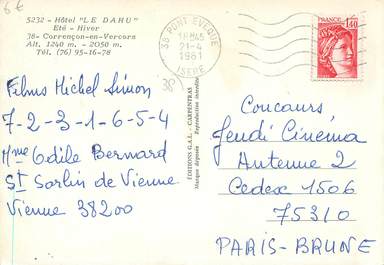 5€
5232 - Hôtel "LE DAHU"
Eté - Hiver
38- Corrençon-en-Vercors
Alt. 1240 m. - 2050 m.
Tél. (76) 95-16-78
38 PONT-EVEQUE
18H45
21-4
1981
ISERE
FRANCE
1,40
38
EDITIONS G.A.L. - CARPENTRAS
Marque déposée Reproduction interdite
Films Michel Simon
7-2-3-1-6-5-4
Mme Odile Bernard
St Sorlin de Vienne
Vienne 38200
Concours
Jeudi Cinéma
Antenne 2
Cedex 1506
75310
PARIS-BRUNE